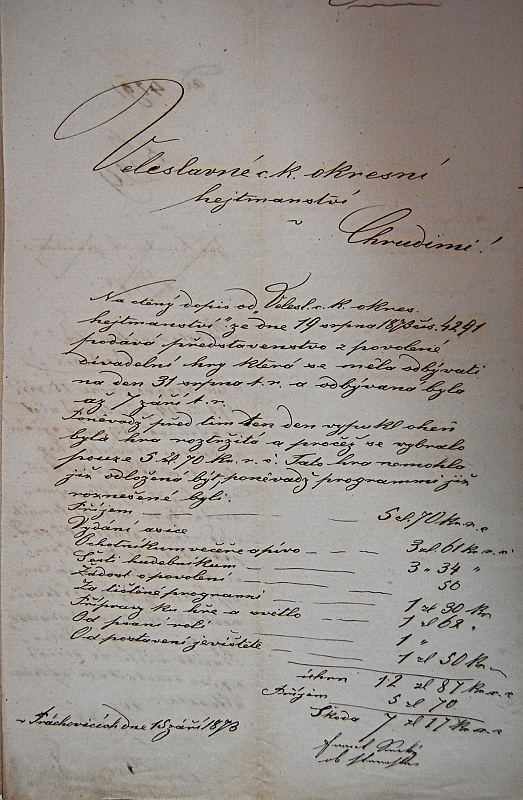 Veleslavné c. k. okresní
hejtmanství
v
Chrudimi!
Na ctěný dopis od „Velesl. c. k. okres.
hejtmanství" ze dne 19 srpna 1873 čís. 4291
podává představenstvo z povolené
divadelní hry která se měla odbývati
na den 31 srpna t. r. a odbývána byla
až 7 září t. r.
Poněvadž před tím ten den vypukl oheň
byla hra roztržitá a pročež se vybralo
pouze 5 zl 70 kr. r. č. Tato hra nemohla
již odložena být, poněvadž programmi již
roznešené byli.
Příjem — — — 5 zl. 70 kr r. č
Vydání více
Ochotníkum večeře a pivo — — — 3 zl 61 kr r. č
Šesti hudebníkum — — 3 „ 34 „
Žádost o povolení — 50
Za tištěné programmi — 1 zl 30 kr
Přípravy ke hře a světlo — 1 zl 62 „
Od psaní rolí — 1 „
Od postavení jeviště — 1 zl 50 kr
úhrn 12 zl 87 kr r. č
Příjem 5 zl 70
Škoda 7 zl 17 kr r. č
v Práchovicích dne 15 září 1873
ob starosta